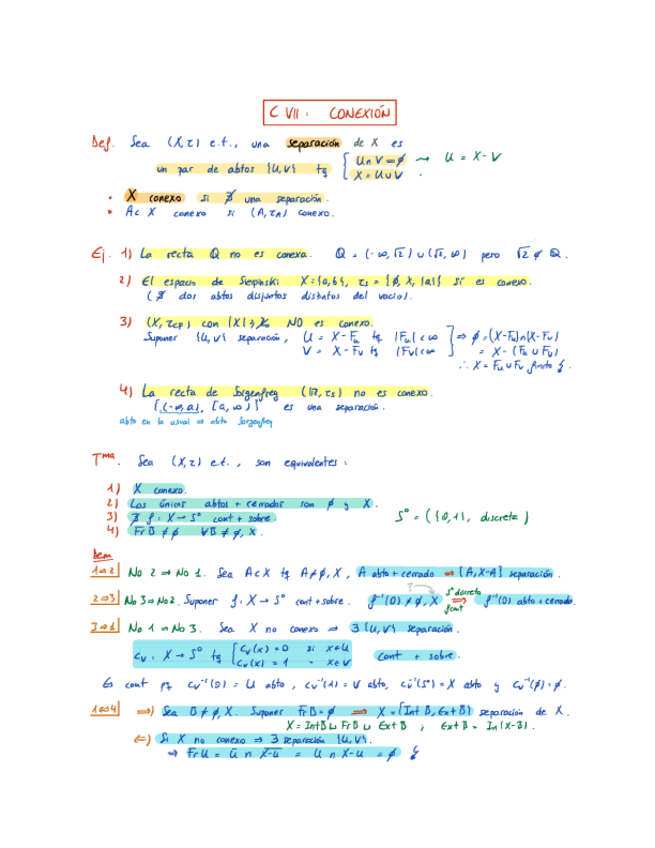 C VII: CONEXIÓN
Def. Sea (X,τ) e.t., una separación de X es
un par de abtos {U,V} tq { U∩V=∅ ⇝ U = X-V
X=U∪V.
• X conexo si ∄ una separación.
• A⊂X conexo si (A,τ_A) conexo.
Ej. 1) La recta ℚ no es conexa. ℚ = (-∞,√2)∪(√2,∞) pero √2∉ℚ.
2) El espacio de Sierpinski X={a,b}, τ_S = {∅,X,{a}} sí es conexo.
(∄ dos abtos disjuntos distintos del vacío).
3) (X,τ_CF) con |X|≥ℵ₀ NO es conexo.
Suponer {U,V} separación, U = X-F_U tq |F_U|<∞ ] ⇒ ∅=(X-F_U)∩(X-F_V)
V = X-F_V tq |F_V|<∞ = X-(F_U∪F_V)
∴ X=F_U∪F_V finito
4) La recta de Sorgenfrey (ℝ,τ_S) no es conexo.
{(-∞,a), [a,∞)} es una separación.
abto en la usual ⇒ abto Sorgenfrey
Tma. Sea (X,τ) e.t., son equivalentes:
1) X conexo.
2) Los únicos abtos + cerrados son ∅ y X.
3) ∄ f: X→S⁰ cont + sobre S⁰ = ({0,1}, discreta)
4) Fr B≠∅ ∀B≠∅,X.
Dem
1⇒2 No 2 ⇒ No 1. Sea A⊂X tq A≠∅,X, A abto + cerrado ⇒ {A,X-A} separación.
2⇒3 No 3⇒No 2. Suponer f: X→S⁰ cont + sobre. f⁻¹(0)≠∅,X ⇒ f⁻¹(0) abto + cerrado.
S⁰ discreto
f cont
3⇒1 No 1 ⇒ No 3. Sea X no conexo ⇒ ∃{U,V} separación.
c_V: X→S⁰ tq { c_V(x)=0 si x∈U cont + sobre.
c_V(x)=1 " x∈V
Es cont pq c_V⁻¹(0)=U abto, c_V⁻¹(1)=V abto, c_V⁻¹(S⁰)=X abto y c_V⁻¹(∅)=∅.
1⇔4 ⇒) Sea B≠∅,X. Suponer Fr B=∅ ⇒ X={Int B, Ext B} separación de X.
X = Int B ⊔ Fr B ⊔ Ext B ; Ext B = In(X-B).
⇐) Si X no conexo ⇒ ∃ separación {U,V}.
⇒ Fr U = Ū ∩ X-U = U ∩ X-U = ∅